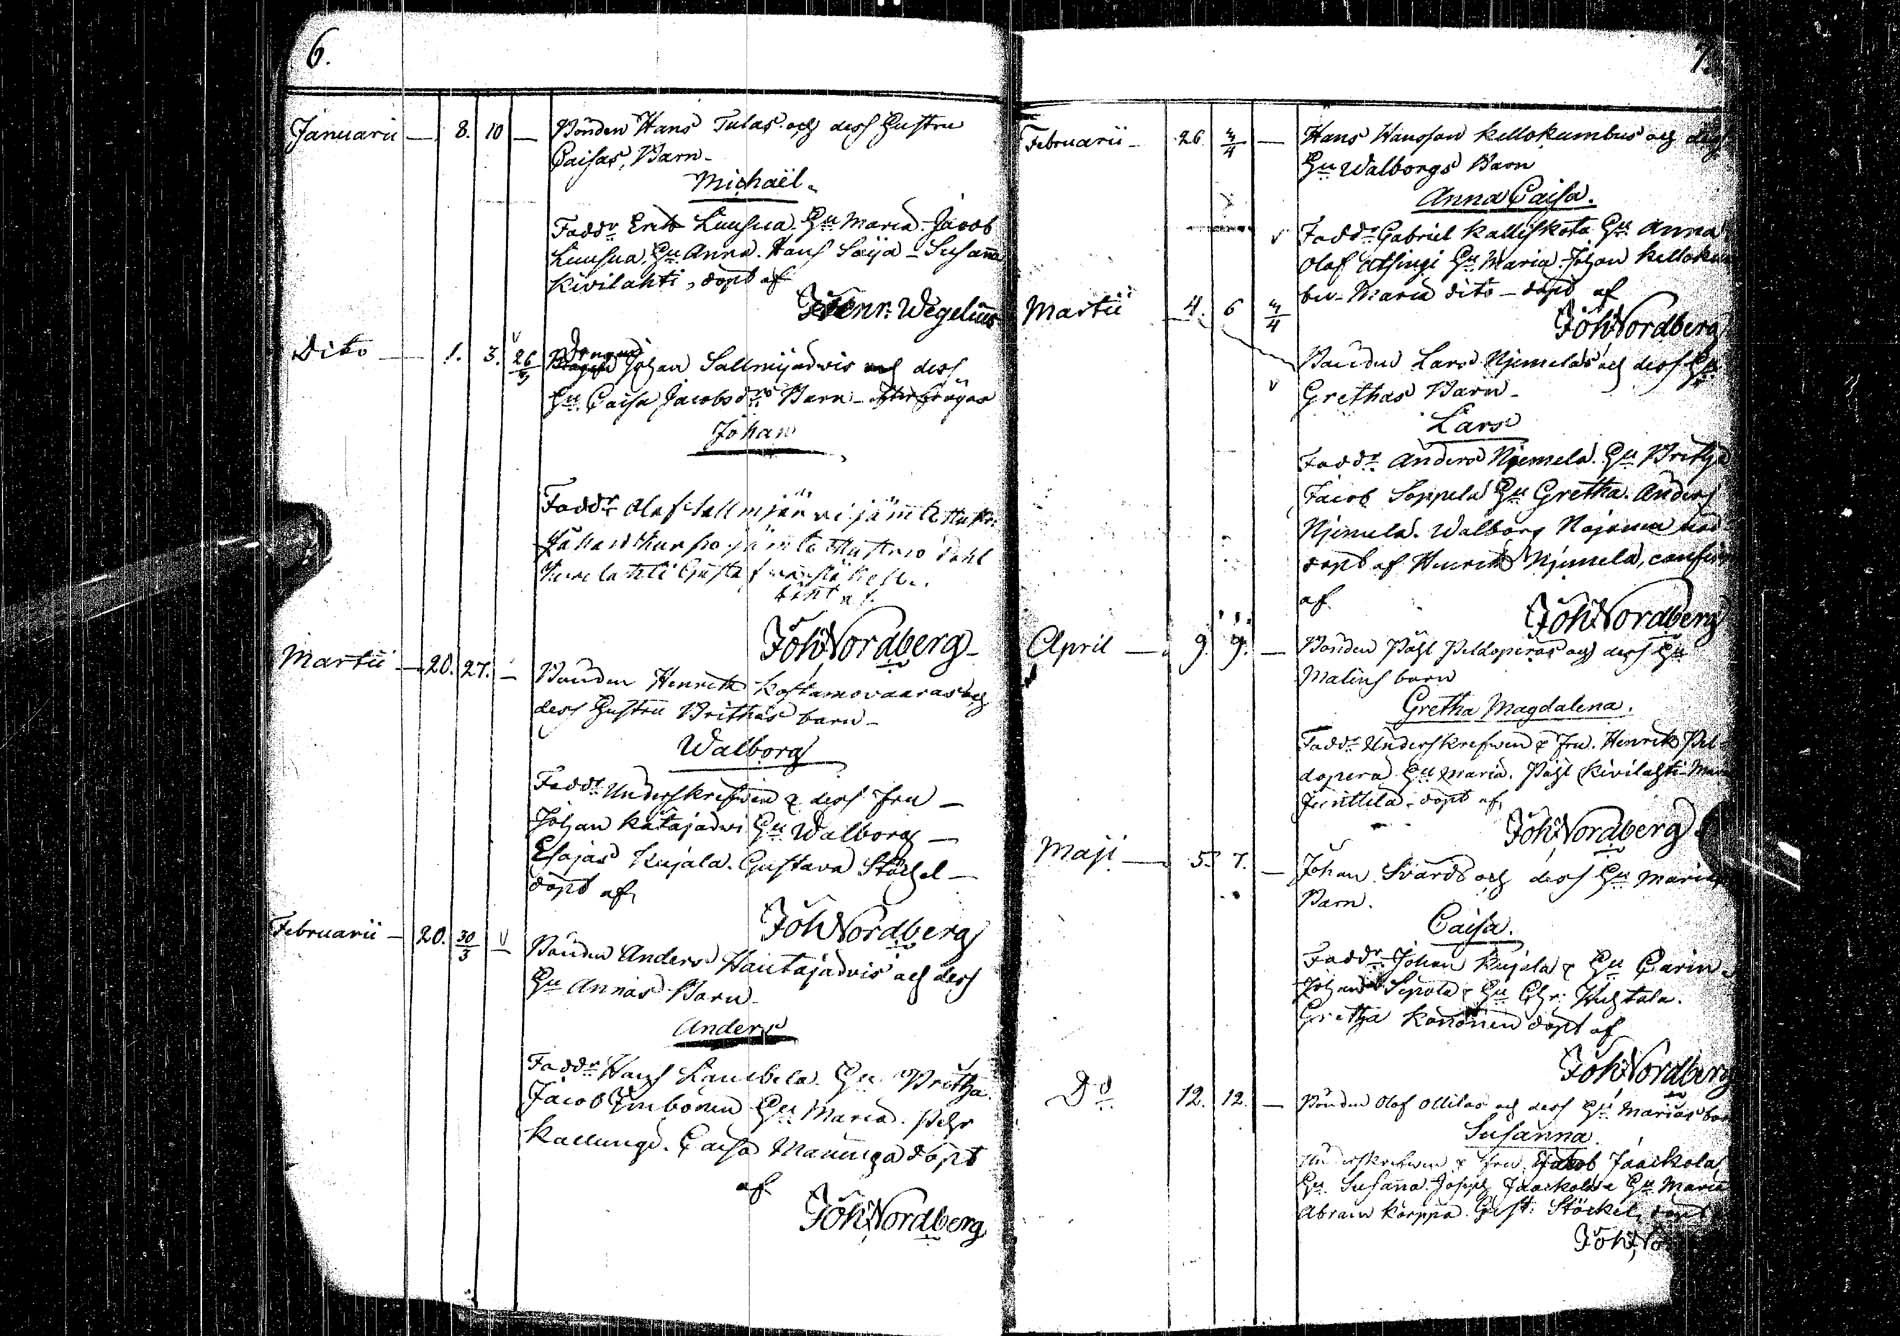 6.
Januarii — 8. 10 — Bonden Hans Tulas och dess Hustru
Caisas, Barn -
Michaël.
Faddr Erik Luusua. Hu Maria. Jacob
Luusua, Hu Anna. Hans Säijä - Susanna
Kivilahti, döpt af
Henr: Wegelius
Dito — 1. 3. 26/3 Johan Sallmijärwis och dess
Hu Caisa Jacobsdrs Barn -
Johan
Faddr Olof Sallmijärvi jämte Hustru
jämte Hustru Påhl
Kivilahti Gusta
döpt af.
Joh: Nordberg -
Martii — 20. 27. — Bonden Henrik Kostamovaaras och
dess Hustru Brithas barn -
Walborg
Faddr Underskrefwen & dess Fru —
Johan Katajärwi Hu Walborg —
Esajas Kujala. Gustava Stöckel —
döpt af,
Joh: Nordberg
Februarii — 20. 30/3 — Bonden Anders Hautajärvis och dess
Hu Annas Barn -
Anders
Faddr Hans Laukela. Hu Britha.
Jacob Imbonen Hu Maria. Pehr
Kallungi. Caisa döpt
af
Joh: Nordberg
7.
Februarii — 26 3/4 — Hans Hansson Kellokumbus och dess
Hu Walborgs Barn
Anna Caisa.
Faddr Gabriel Kalliskota Hu Anna
Olof Atsingi Hu Maria. Johan Kellokum
bu - Maria dito - döpt af
Joh: Nordberg
Martii 4. 6 3/4
Bonden Lars Njemelas och dess Hu
Grethas Barn -
Lars
Faddr Anders Njemela. Hu Britha
Jacob Soppela Hu Gretha. Anders
Njemela. Walborg
döpt af Henrik Njemela, confirm
af.
Joh: Nordberg
April — 9. 9. — Bonden Påhl Peldoperas och dess Hu
Malins barn
Gretha Magdalena.
Faddr Underskrefwen & Fru. Henrik Pel-
dopera Hu Maria. Påhl Kivilahti - Maria
Junttila. döpt af,
Joh: Nordberg
Maji — 5. 7. — Johan Svärds och dess Hu Marias
Barn.
Caisa.
Faddr Johan Kujala & Hu Carin -
Johan Sepola & Hu Chr: Huhtala.
Gretha Kononen döpt af
Joh: Nordberg
Do 12. 12. — Bonden Olof Ollilas och dess Hu Marias bar
Susanna.
Underskrefwen & Fru Jakob Jaackola
Hu Susanna. Joseph Jaackola Hu Maria
Abram Karppa. Gust: Stöckel, döpt
Joh: No